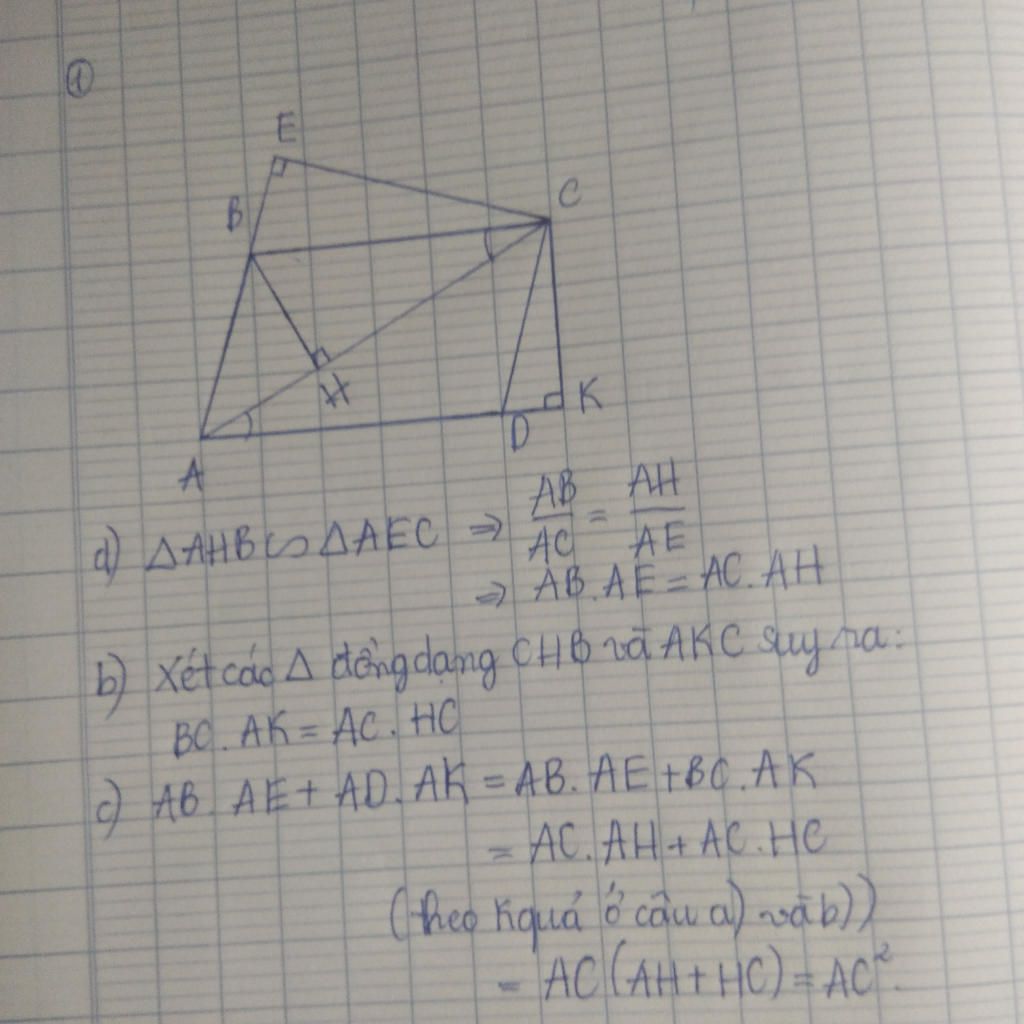 ①
E
B
C
H
K
D
A
a) ΔAHB ∽ ΔAEC ⇒ AB/AC = AH/AE
⇒ AB.AE = AC.AH
b) Xét các Δ đồng dạng CHB và AKC suy ra:
BC.AK = AC.HC
c) AB.AE + AD.AK = AB.AE + BC.AK
= AC.AH + AC.HC
(theo kquả ở câu a) và b))
= AC(AH + HC) = AC².